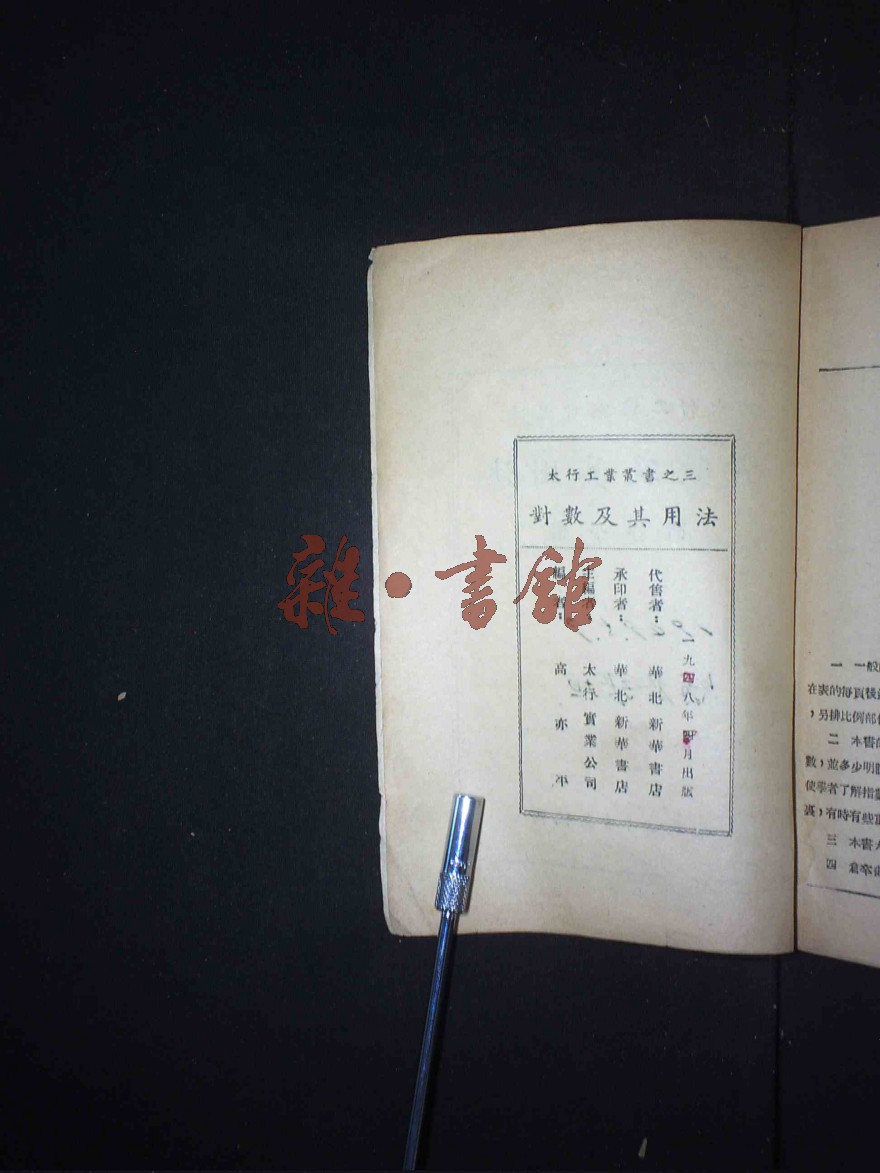 太行工業叢書之三
對數及其用法
一九四八年四月出版
代售者：華北新華書店
承印者：華北新華書店
主編者：太行實業公司
編者：高亦平
雜·書館
一 一般
在表的每頁
，另排比例部
二 本書
數，並多少明
使學者了解指
，有時有些
三 本書
四 倉卒